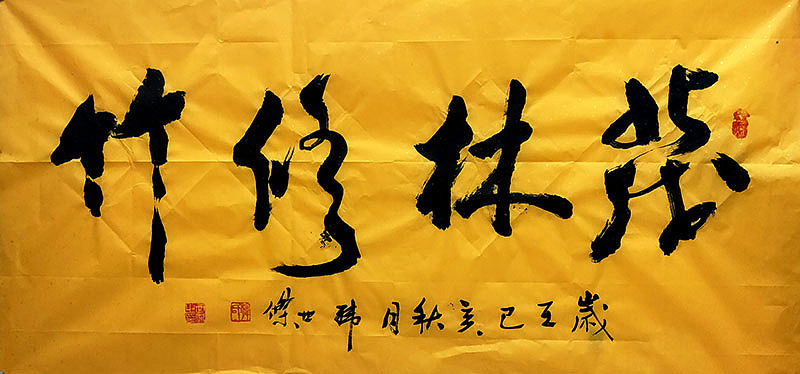 茂林修竹
歲在己亥秋月韩世傑